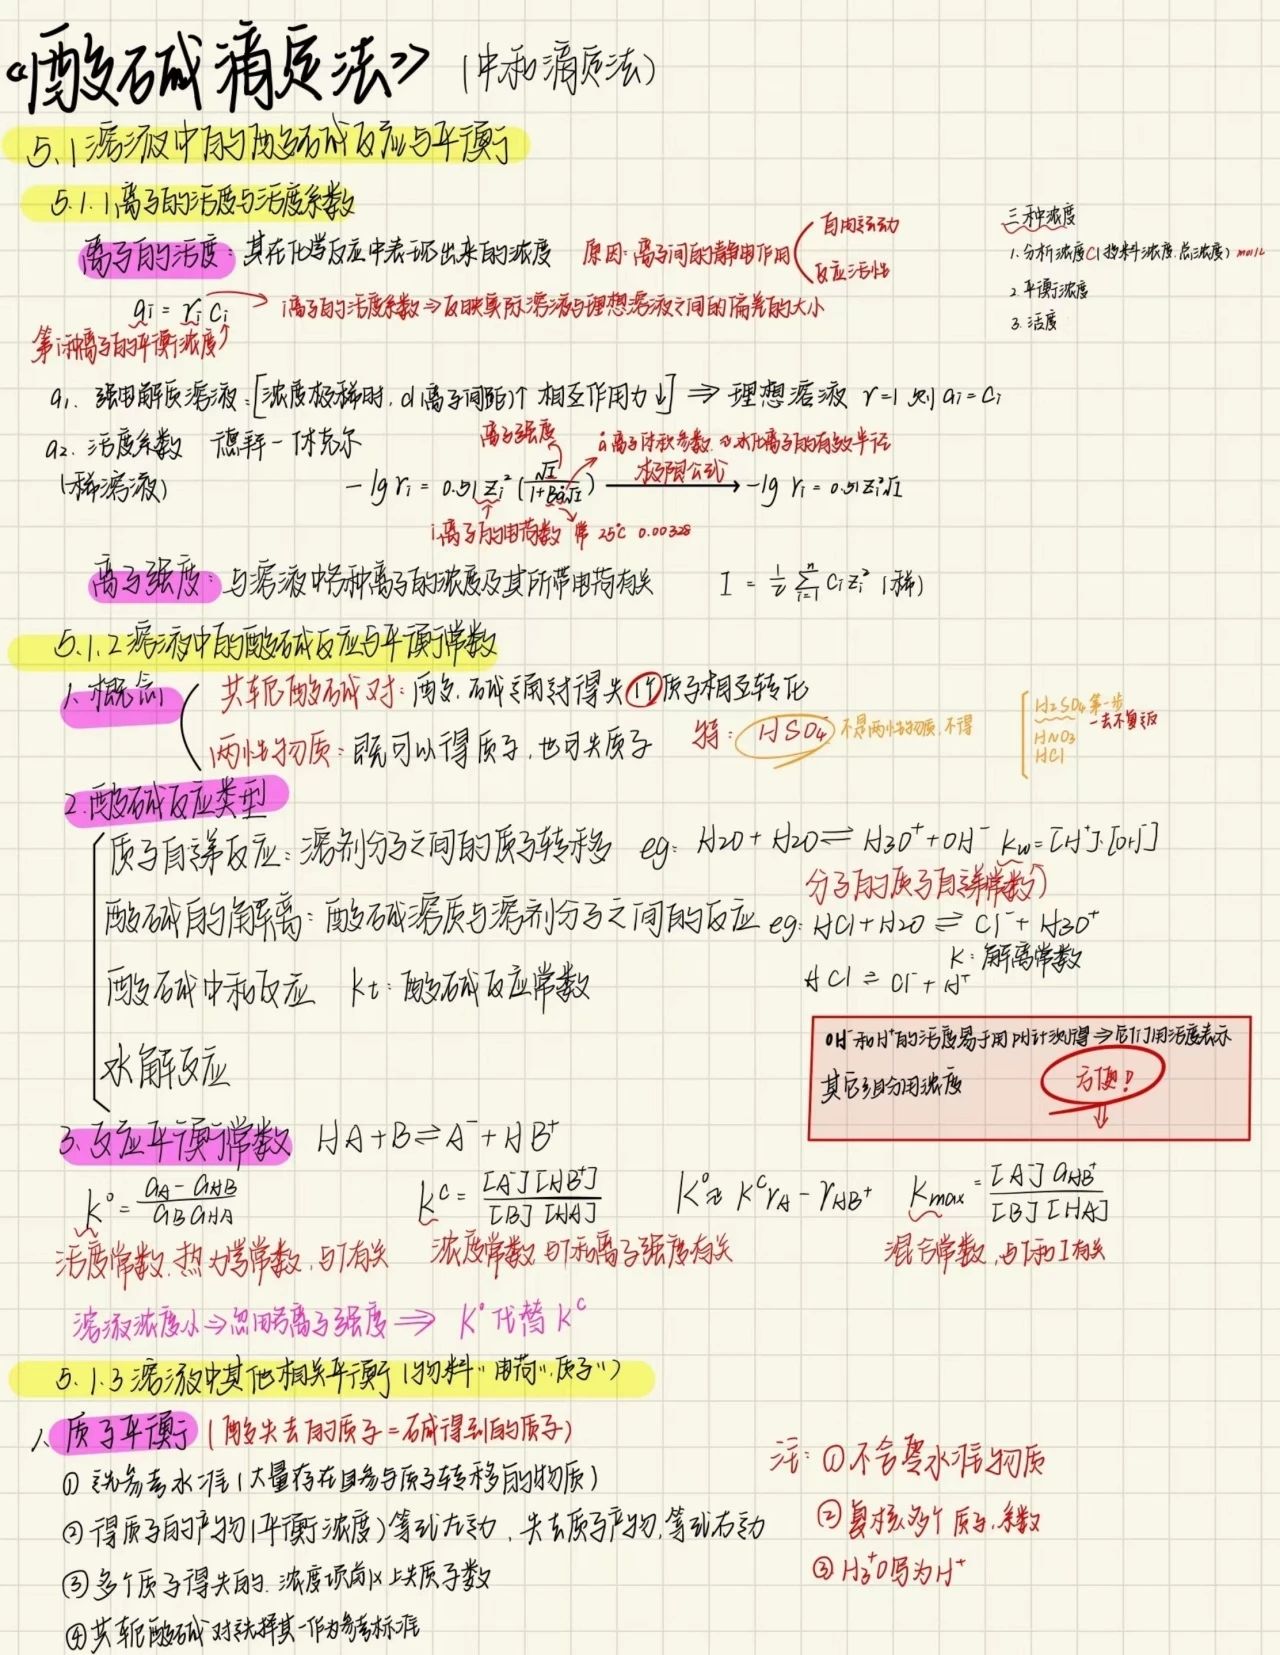 《酸碱滴定法》（中和滴定法）
5.1 溶液中的酸碱反应与平衡
5.1.1 离子的活度与活度系数
离子的活度：其在化学反应中表现出来的浓度 原因：离子间的静电作用 自由运动 反应活性
三种浓度
1. 分析浓度C（投料浓度.总浓度）mol/L
2. 平衡浓度
3. 活度
ai = γi ci → i离子的活度系数⇒反映实际溶液与理想溶液之间的偏差的大小
第i种离子的平衡浓度
a1. 强电解质溶液：[浓度极稀时，d(离子间距)↑ 相互作用力↓] ⇒ 理想溶液 γ=1 则 ai=ci
a2. 活度系数 德拜-休克尔
离子强度 å离子体积参数 水化离子的有效半径
(稀溶液) -lg γi = 0.51 Zi² (√I / 1+Bå√I) 极限公式→ -lg γi = 0.51Zi²√I
i离子的电荷数 常 25℃ 0.00328
离子强度：与溶液中各种离子的浓度及其所带电荷有关 I = 1/2 Σ(i=1→n) CiZi² (稀)
5.1.2 溶液中的酸碱反应与平衡常数
1. 概念
共轭酸碱对：酸.碱通过得失1个质子相互转化
两性物质：既可以得质子,也可失质子 特：HSO4⁻ 不是两性物质,不得
H2SO4 第一步
一去不复返
HNO3
HCl
2. 酸碱反应类型
质子自递反应：溶剂分子之间的质子转移 eg: H2O + H2O ⇌ H3O⁺ + OH⁻ Kw=[H⁺]·[OH⁻]
分子的质子自递常数)
酸碱的解离：酸碱溶质与溶剂分子之间的反应 eg: HCl + H2O ⇌ Cl⁻ + H3O⁺
K：解离常数
HCl ⇌ Cl⁻ + H⁺
酸碱中和反应 Kt：酸碱反应常数
水解反应
OH⁻和H⁺的活度易于用pH计测得⇒它们用活度表示
其它组分用浓度 方便!
3. 反应平衡常数 HA + B ⇌ A⁻ + HB⁺
K° = aA⁻ aHB / aB aHA K^C = [A⁻][HB⁺] / [B][HA] K°≈ K^C γA⁻ γHB⁺ Kmax = [A⁻] aHB⁺ / [B][HA]
活度常数.热力学常数,与T有关 浓度常数 与T和离子强度有关 混合常数,与T和I有关
溶液浓度小⇒忽略离子强度⇒ K°代替K^C
5.1.3 溶液中其他相关平衡（物料“电荷”质子”）
1. 质子平衡（酸失去的质子=碱得到的质子）
① 选参考水准(大量存在且参与质子转移的物质)
② 得质子的产物(平衡浓度)等式左边，失去质子产物,等式右边
③ 多个质子得失的.浓度项前×上失质子数
④ 共轭酸碱对选择其一作为参考标准
注：① 不含零水准物质
② 复核多个质子.系数
③ H3⁺O写为H⁺